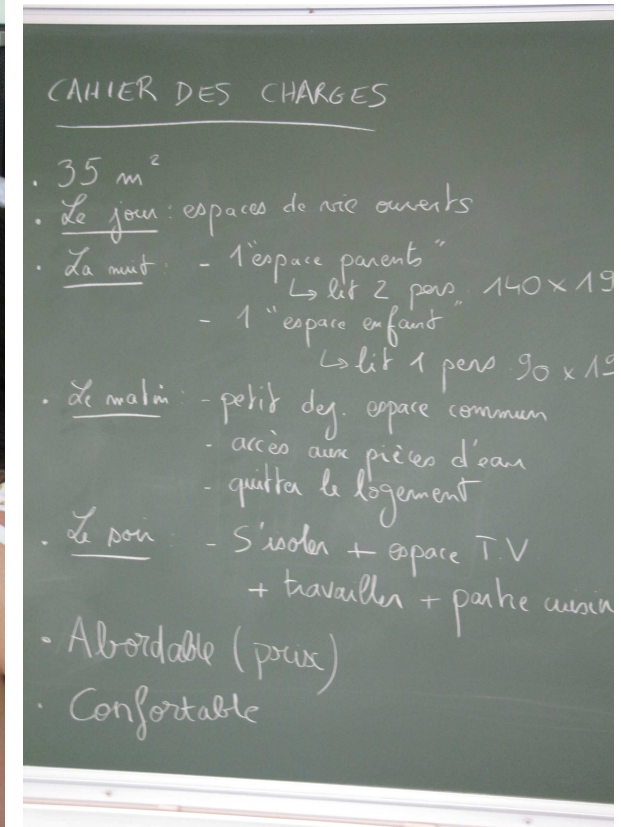 CAHIER DES CHARGES
. 35 m²
. Le jour : espaces de vie ouverts
. La nuit : - 1 "espace parents"
↳ lit 2 pers. 140 x 19
- 1 "espace enfant"
↳ lit 1 pers 90 x 19
. Le matin : - petit dej. espace commun
- accès aux pièces d'eau
- quitter le logement
. Le soir - S'isoler + espace T.V
+ travailler + partie cuisin
. Abordable (prix)
. Confortable